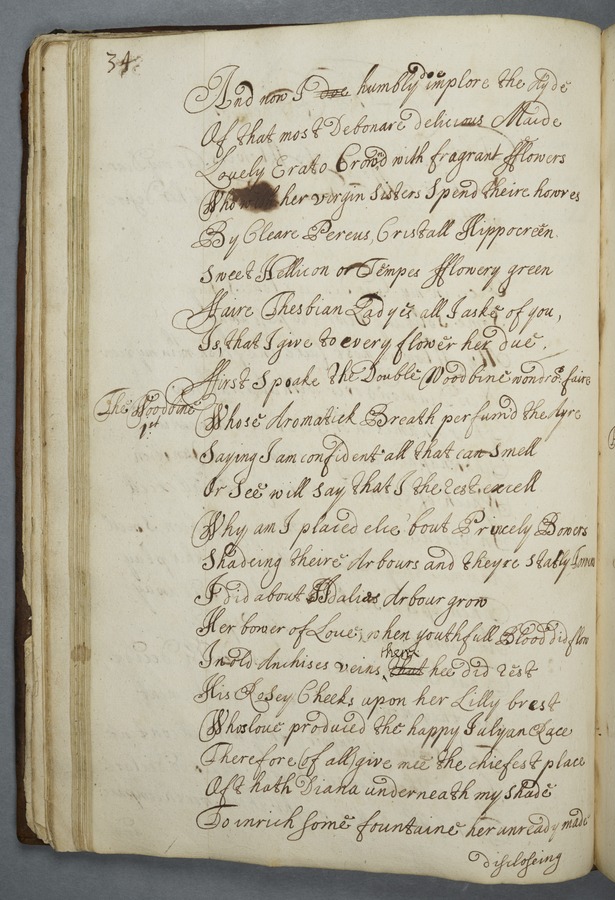 34
And now I doe humbly doe implore the Ayde
Of that most Debonare delicious Maide
Lovely Erato Crown'd with fragrant fflowers
Who with her virgin Sisters Spend theire howres
By Cleare Pereus, Cristall Hippocreen
Sweet Hellicon or Tempes fflowery green
ffaire Thesbian Ladyes all I aske of you,
Is, that I give to every flower her due.
ffirst Spoake the Double Woodbine wondros faire
The Woodbine
1st
Whose Aromatick Breath perfum'd the Ayre
Saying I am confident all that can smell
Or See will say that I the rest excell
Why am I placed else 'bout Princely Bowers
Shadeing theire Arbours and theyre stately
I did about Idalias Arbour grow
Her bower of Love, when youthfull Blood did flow
there
In old Anchises veins, that hee did rest
His Rosey Cheeks upon her Lilly brest
Whos love produced the happy Julyan Race
Therefore (of all) give mee the chiefest place
Oft hath Diana underneath my shade
To inrich some fountaine her unready made
discloseing